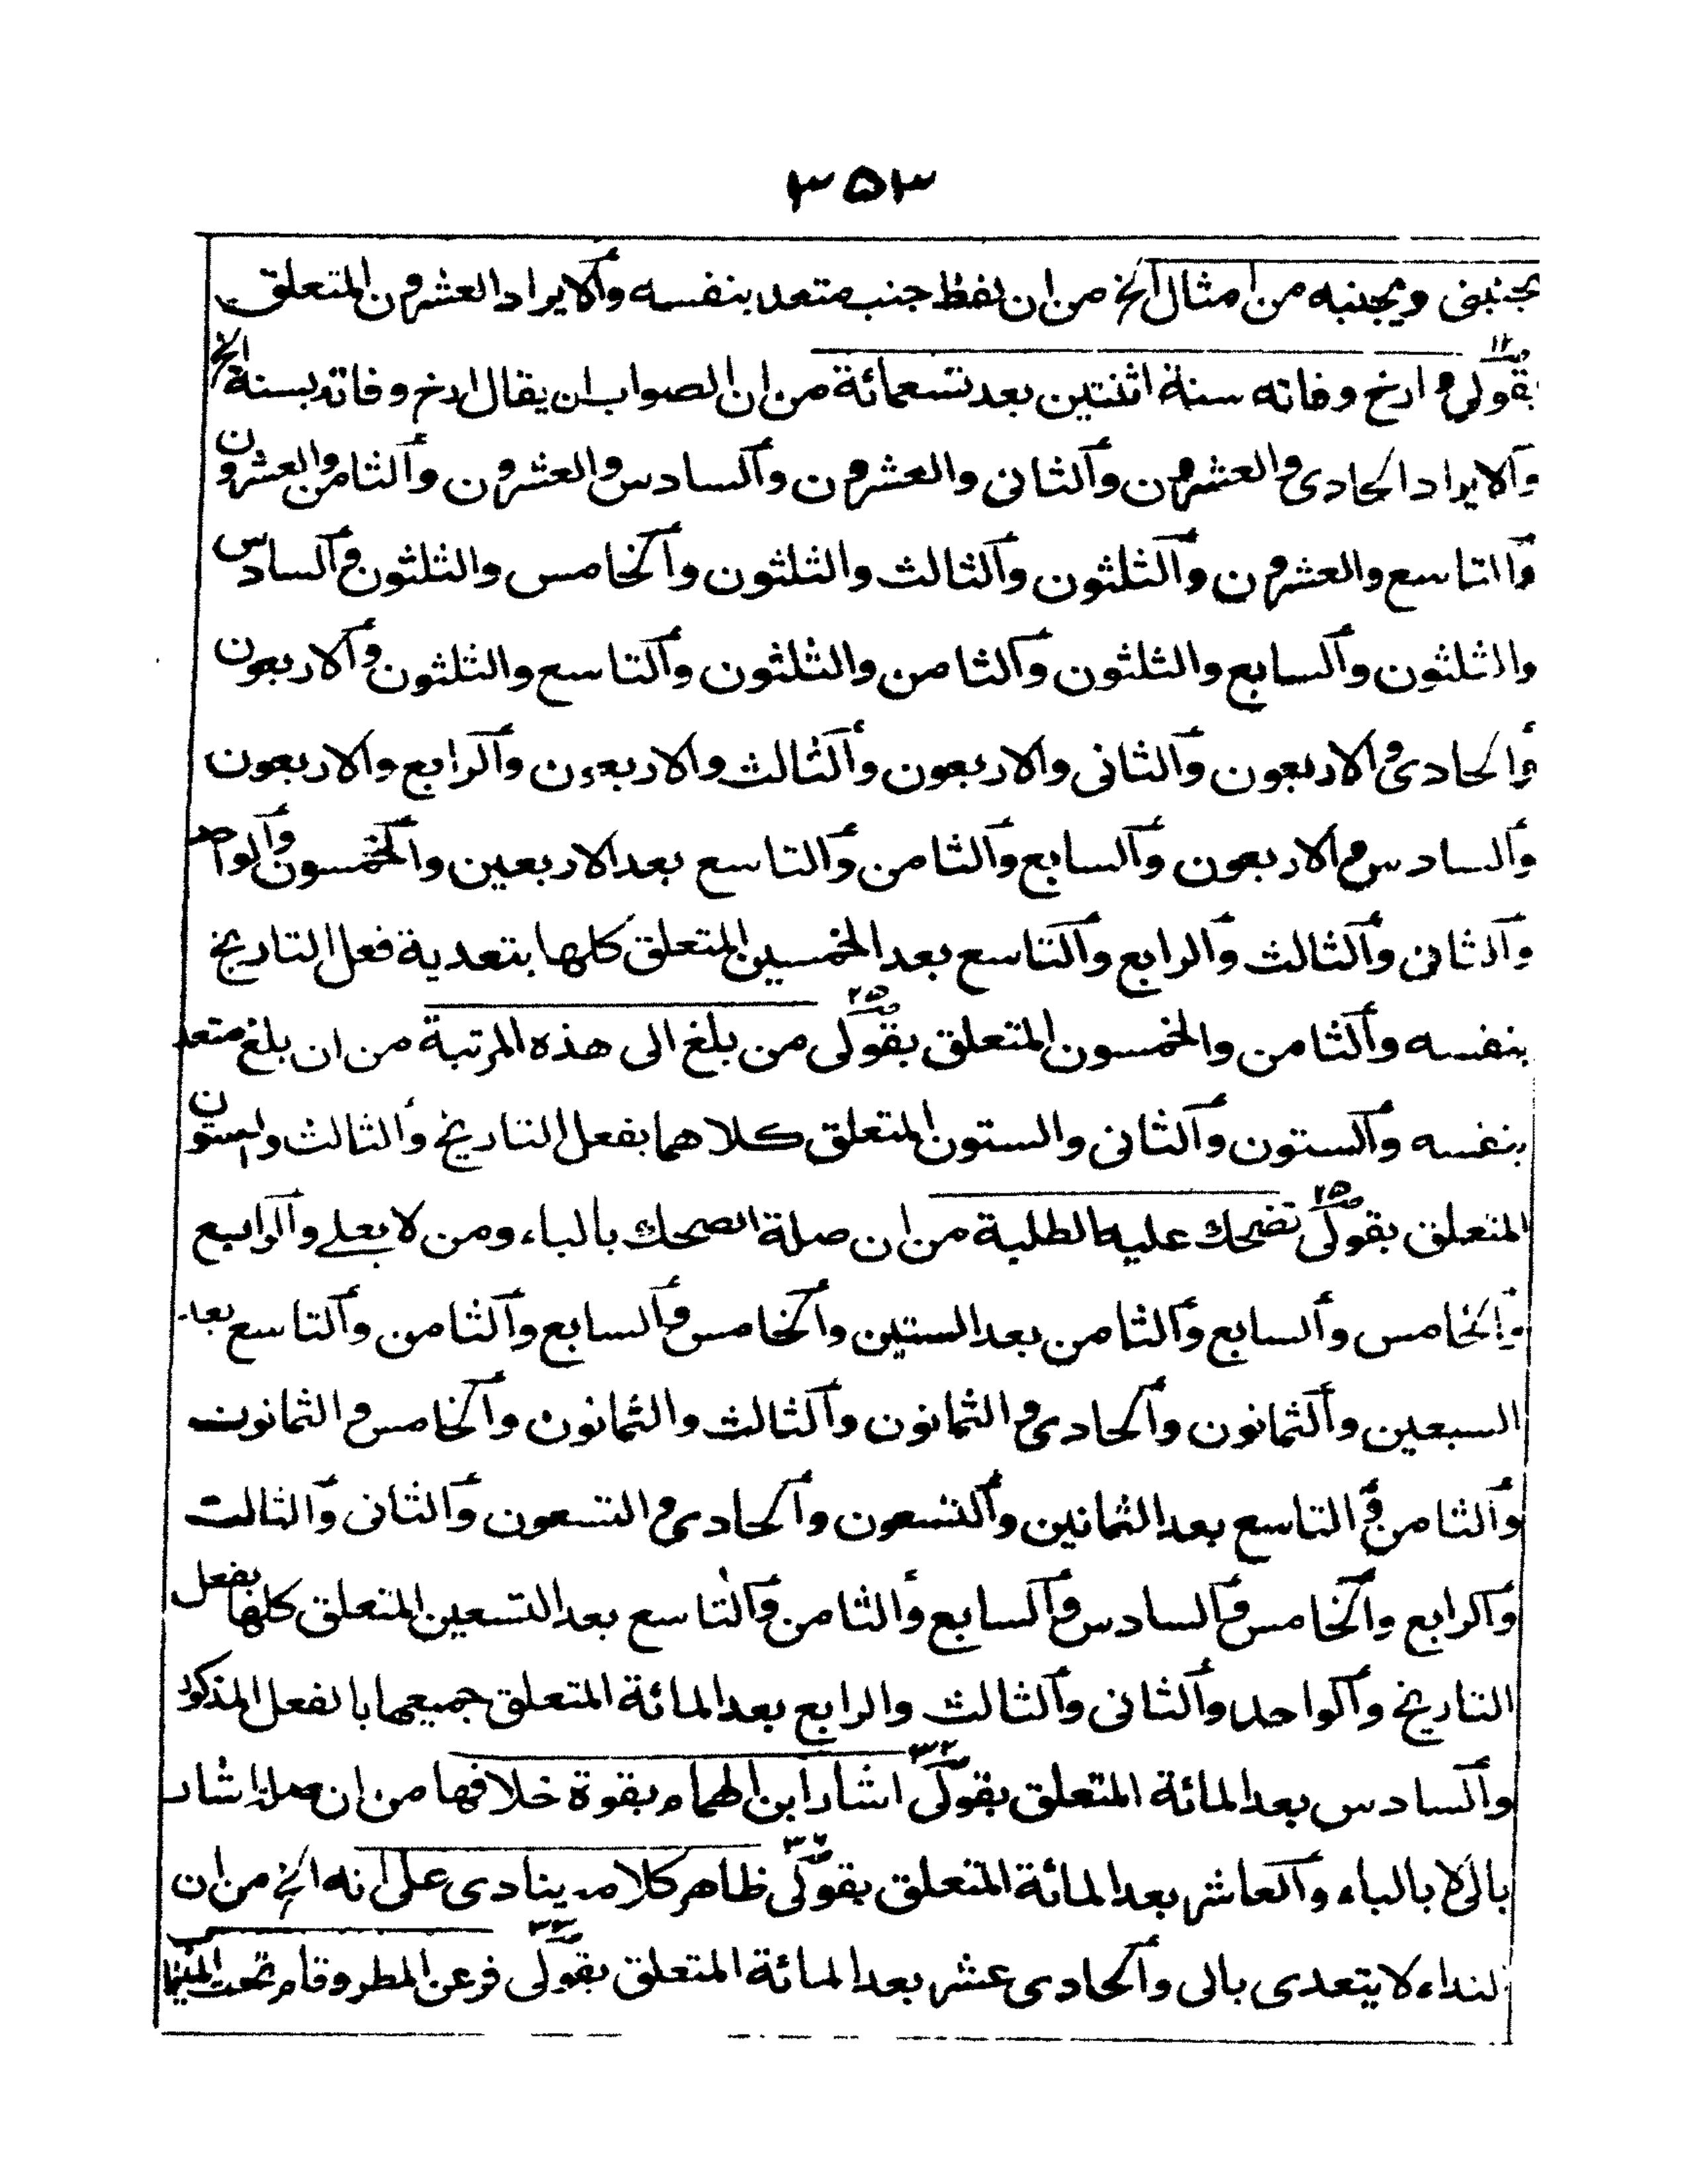 ٣٥٣
يجنبنى ويجنبه من امثال الخ من ان لفظ جنب متعد بنفسه والايراد العشرون المتعلق
بقولى وارخ وفاته سنة اثنتين بعد تسعمائة من ان الصواب ان يقال ارخ وفاته بسنة الخ
والايراد الحادى والعشرون والثانى والعشرون والسادس والعشرون والثامن والعشرون
والتاسع والعشرون والثلثون والثالث والثلثون والخامس والثلثون والسادس
والثلثون والسابع والثلثون والثامن والثلثون والتاسع والثلثون والاربعون
والحادى والاربعون والثانى والاربعون والثالث والاربعون والرابع والاربعون
والسادس والاربعون والسابع والثامن والتاسع بعد الاربعين والخمسون والواحد
والثانى والثالث والرابع والتاسع بعد الخمسين المتعلق كلها بتعدية فعل التاريخ
بنفسه والثامن والخمسون المتعلق بقولى ٢٥ من بلغ الى هذه المرتبة من ان بلغ متعد
بنفسه والستون والثانى والستون المتعلق كلاهما بفعل التاريخ والثالث والستون
المتعلق بقولى ٢٥ تضحك عليه الطلبة من ان صلة الضحك بالباء ومن لا بعلے والرابع
والخامس والسابع والثامن بعد الستين والخامس والسابع والثامن والتاسع بعد
السبعين والثمانون والحادى والثمانون والثالث والثمانون والخامس والثمانون
والثامن والتاسع بعد الثمانين والتسعون والحادى والتسعون والثانى والثالث
والرابع والخامس والسادس والسابع والثامن والتاسع بعد التسعين المتعلق كلها بفعل
التاريخ والواحد والثانى والثالث والرابع بعد المائة المتعلق جميعها بالفعل المذكور
والسادس بعد المائة المتعلق بقولى اشار ابن الهمام بقوة خلافها من ان صلة اشار
بالى لا بالباء والعاشر بعد المائة المتعلق بقولى ظاهر كلامه ينادى على انه الخ من ان
النداء لا يتعدى بالى والحادى عشر بعد المائة المتعلق بقولى فر عن المطر وقام تحت